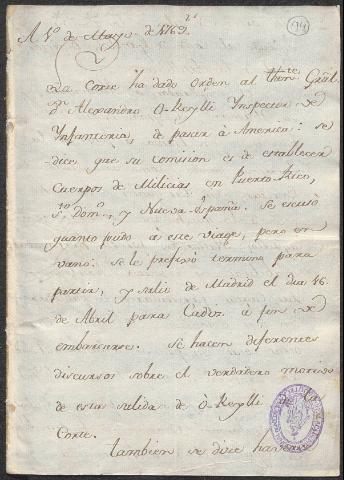 A 1º de Mayo de 1769.
La Corte ha dado orden al thente Gral
dn Alexandro O-Reylli Inspector de
Infanteria, de pasar à America: se
dice què su comision es de establecer
Cuerpos de Milicias en Puerto-Rico,
Sto Domo, y Nueva-España. Se escusò
quanto pudo à este viage, pero en
vano: se le prefixò termino para
partir, y saliò de Madrid el dia 16
de Abril para Cadiz à fin de
embarcarse. Se hacen diferentes
discursos sobre el verdadero motivo
de esta salida de O-Reylli de la
Corte.
tambien se dice han